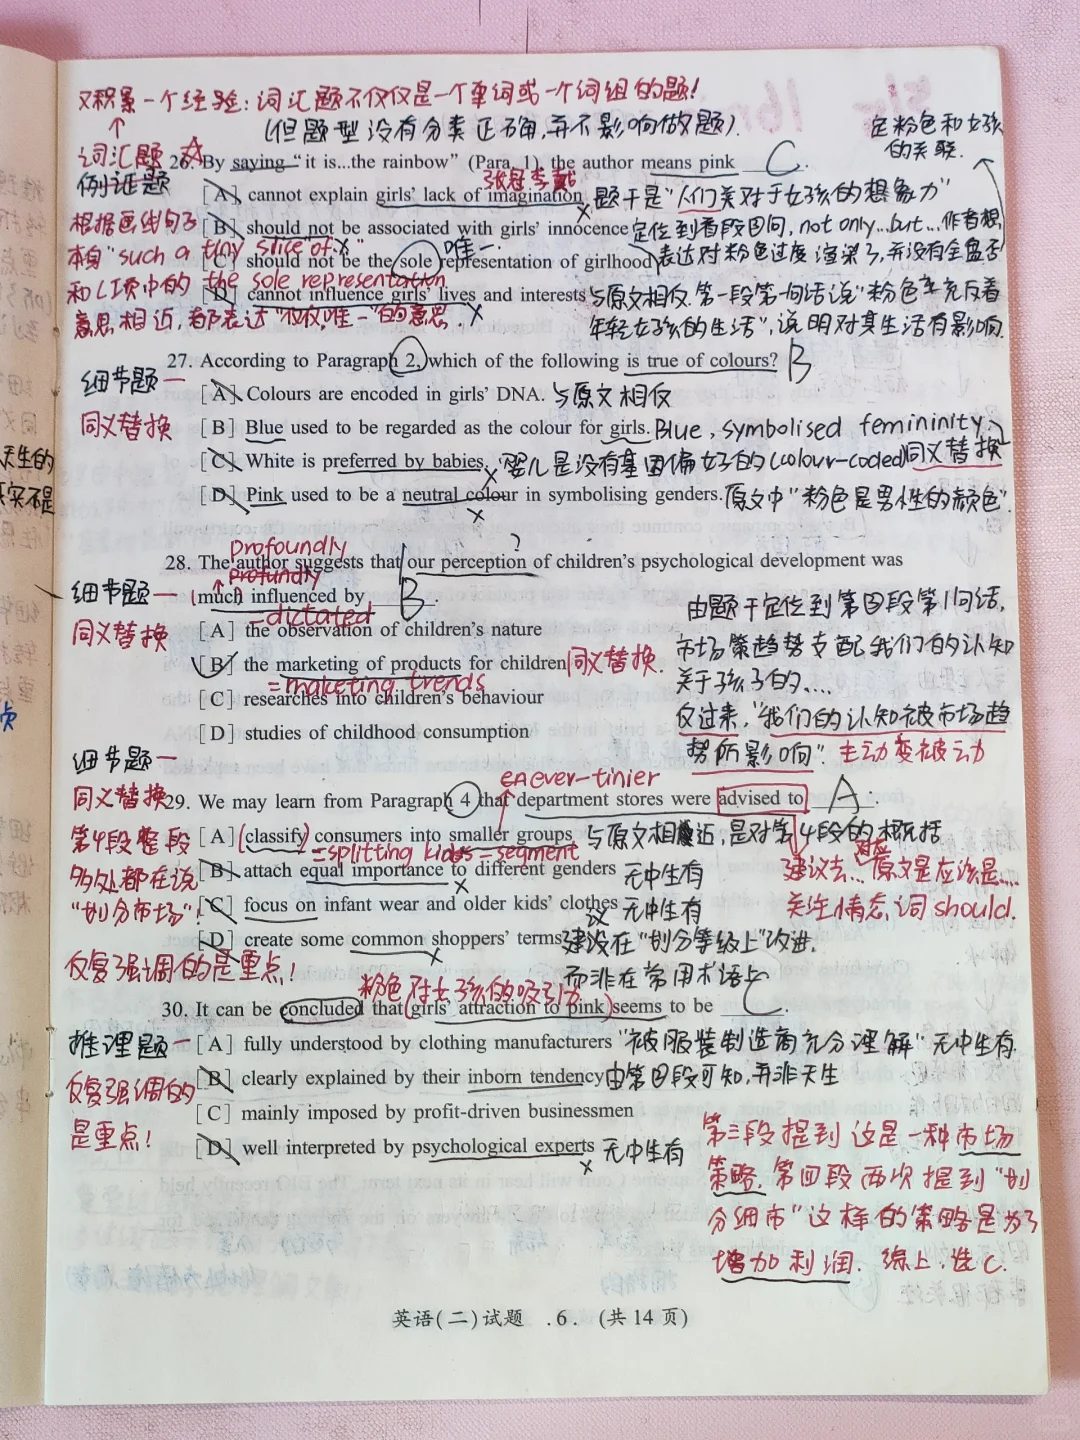 又积累一个经验：词汇题不仅仅是一个单词或一个词组的题！
(但题型没有分类正确，并不影响做题).
是粉色和女孩
的关联.
词汇题
例证题
26. By saying "it is...the rainbow" (Para. 1), the author means pink ______. C
张冠李戴
[A] cannot explain girls' lack of imagination 题干是"人们关对于女孩的想象力"
根据画线句子
[B] should not be associated with girls' innocence 定位到首段回间, not only...but...作者想
本身"such a tiny slice of" 唯一
[C] should not be the sole representation of girlhood 表达对粉色过度渲染了,并没有全盘否
和C项中的 the sole representation
[D] cannot influence girls' lives and interests 与原文相反.第一段第一句话说"粉色充斥着
意思相近，都表达"仅仅,唯一"的意思. 年轻女孩的生活",说明对其生活有影响.
27. According to Paragraph 2, which of the following is true of colours? B
细节题一
[A] Colours are encoded in girls' DNA. 与原文相反
同义替换
[B] Blue used to be regarded as the colour for girls. Blue, symbolised femininity.
[C] White is preferred by babies 婴儿是没有基因偏好的(colour-coded)同义替换
天生的
[D] Pink used to be a neutral colour in symbolising genders. 原文中"粉色是男性的颜色"
其实不是
profoundly
28. The author suggests that our perception of children's psychological development was
?
profundly
细节题一
(much influenced by ______. B
=dictated
由题干定位到第四段第1句话,
同义替换
[A] the observation of children's nature
市场策趋势支配我们的认知
[B] the marketing of products for children 同义替换.
关于孩子的....
=maketing trends
[C] researches into children's behaviour
反过来,"我们的认知被市场趋
[D] studies of childhood consumption
势所影响". 主动变被动
细节题一
en ever-tinier
同义替换
29. We may learn from Paragraph 4 that department stores were advised to ______. A
第4段整段
[A] (classify) consumers into smaller groups 与原文相近,是对第4段的概括
=splitting kids=segment
对应
多处都在说
[B] attach equal importance to different genders 无中生有
建议去... 原文是应该是....
"划分市场"!
[C] focus on infant wear and older kids' clothes 无中生有
关注情态词should.
[D] create some common shoppers' terms 建议在"划分等级上"改进.
反复强调的是重点!
而非在常用术语上
粉色对女孩的吸引力
30. It can be concluded that (girls' attraction to pink) seems to be ______. C
推理题一
[A] fully understood by clothing manufacturers "被服装制造商充分理解"无中生有.
反复强调的
[B] clearly explained by their inborn tendency 由第四段可知,并非天生
是重点!
[C] mainly imposed by profit-driven businessmen
[D] well interpreted by psychological experts 无中生有
第三段提到这是一种市场
策略.第四段两次提到"划
分细市"这样的策略是为了
增加利润. 综上,选C.
英语(二)试题 .6. (共14页)